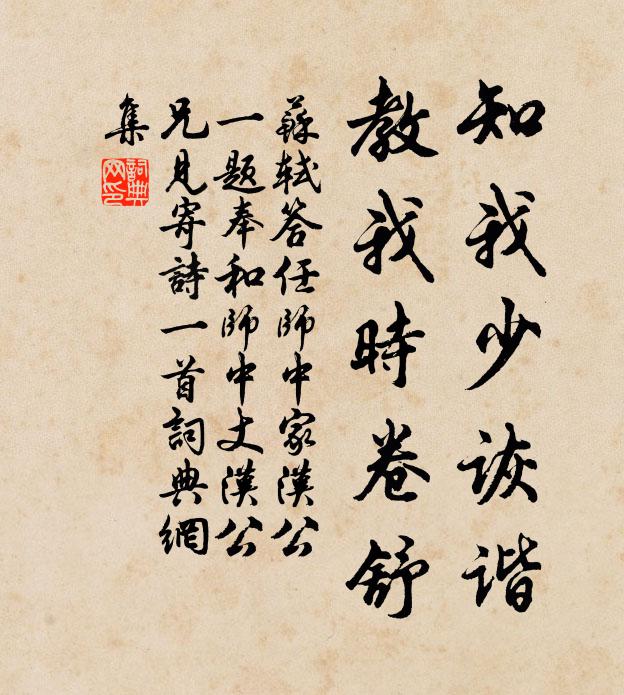 知我少诙谐
教我時卷舒
蘇軾答任師中家漢公
一题奉和師中丈漢公
兄見寄詩一首詞典網
集
詞典
网印